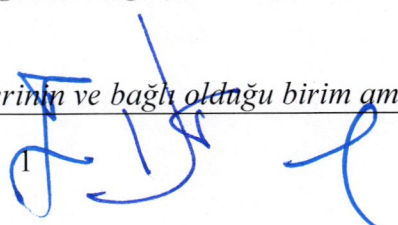 erinin ve bağlı olduğu birim am
1